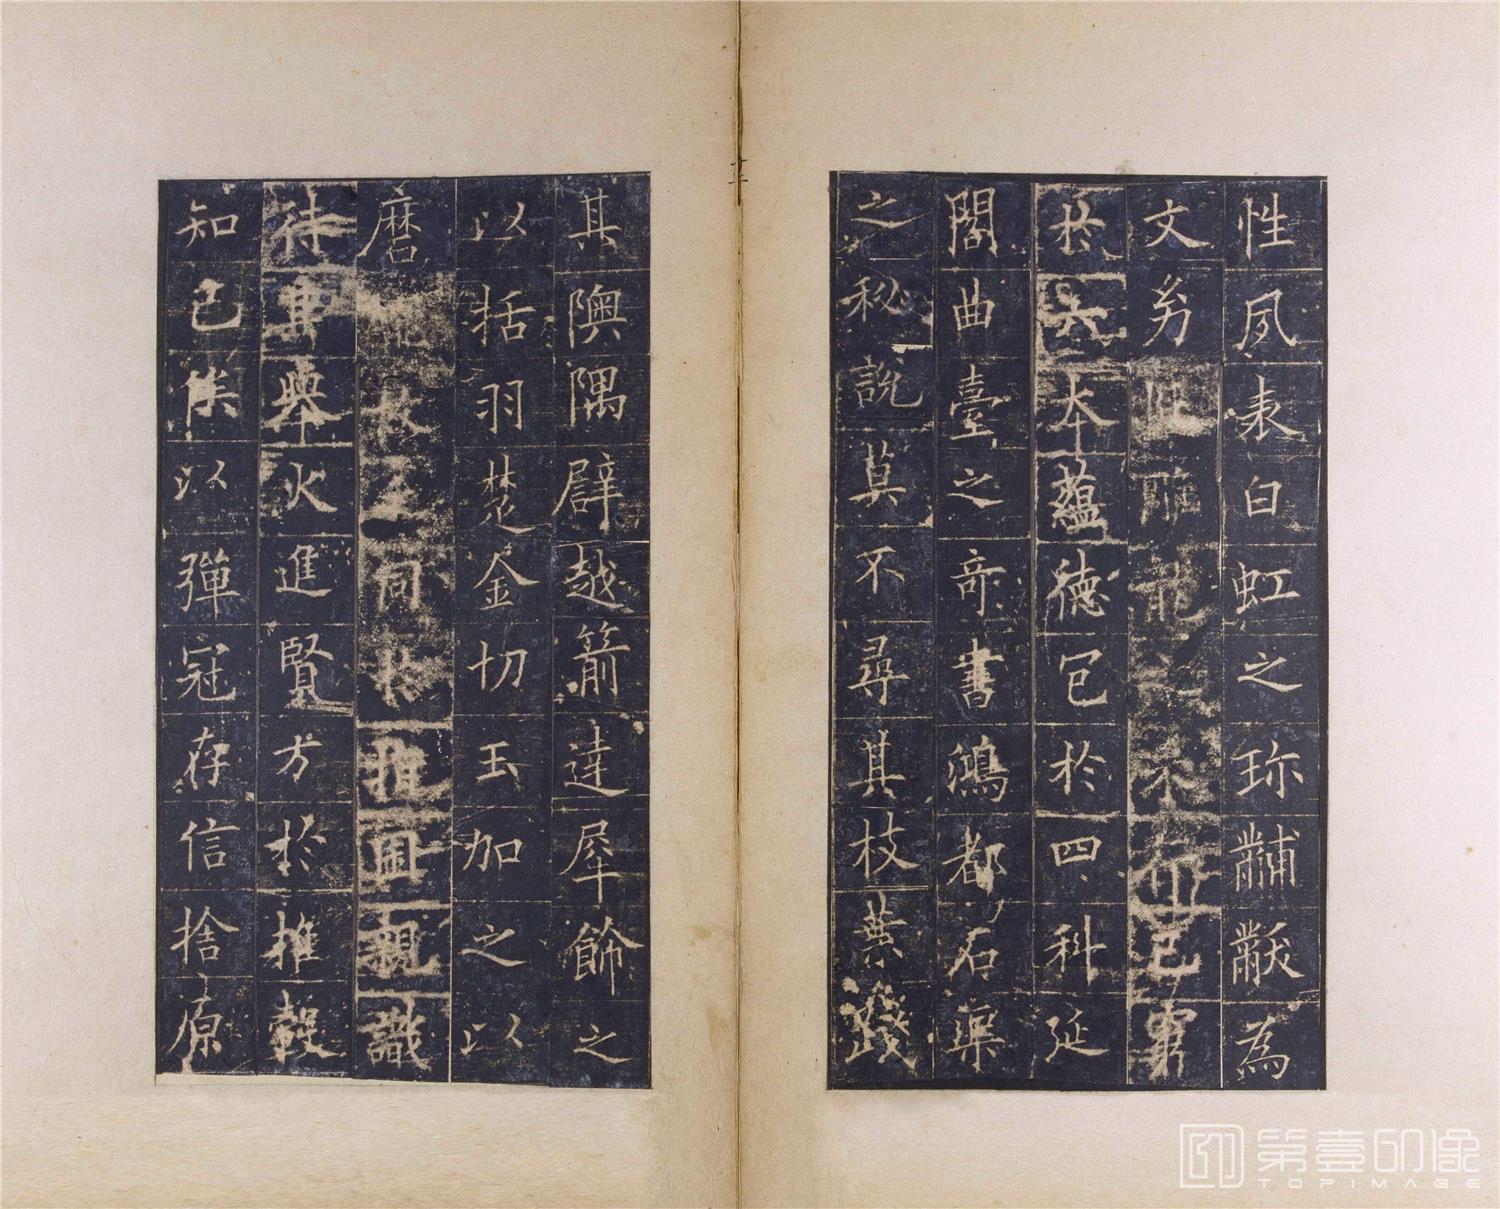 性夙表白虹之珍黼黻為
文幼
於大本蘊德包於四科延
閣曲臺之奇書鴻都石渠
之秘說莫不尋其枝葉踐
其隩隅辟越箭達犀飾之
以括羽楚金切玉加之以
磨同推親識
待其舉火進賢方於推轂
知己俟以彈冠存信捨原
第壹印像
TOPIMAGE